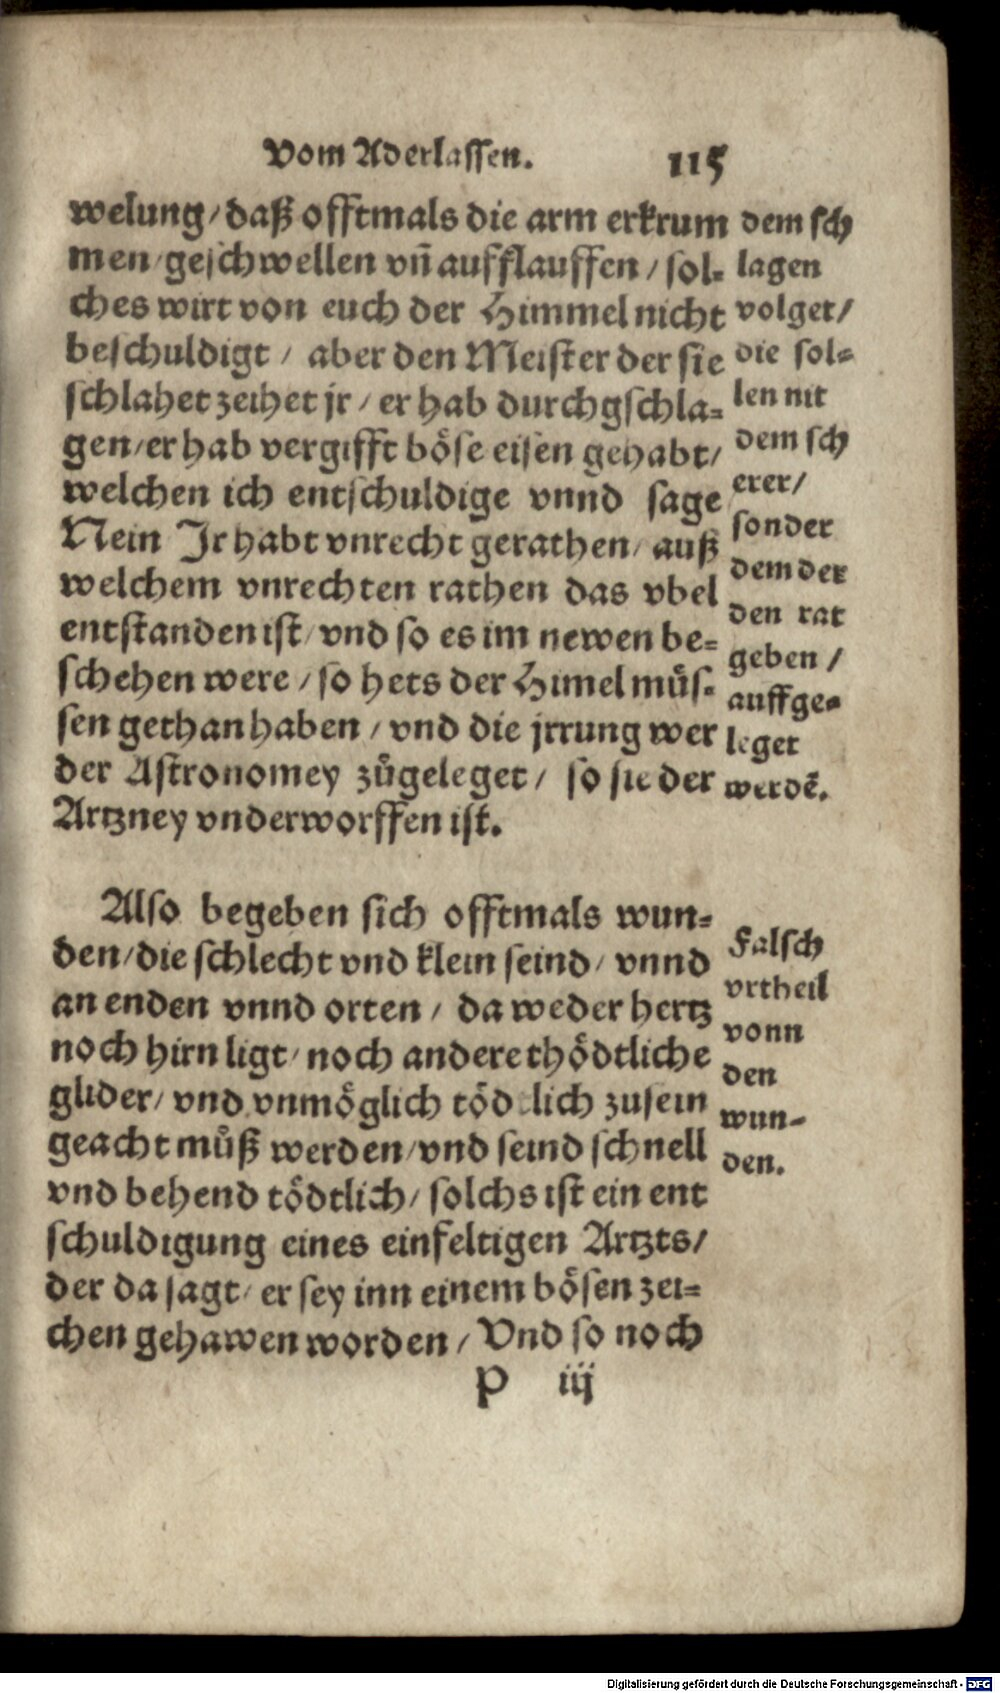 Vom Aderlassen. 115
welung/daß offtmals die arm erkrum
men/geschwellen vñ aufflauffen/sol-
ches wirt von euch der Himmel nicht
beschuldigt/aber den Meister der sie
schlahet zeihet jr/er hab durchgschla-
gen/er hab vergifft böse eisen gehabt/
welchen ich entschuldige vnnd sage
Nein Jr habt vnrecht gerathen/auß
welchem vnrechten rathen das vbel
entstanden ist/vnd so es im newen be-
schehen were/so hets der Himel müs-
sen gethan haben/vnd die jrrung wer
der Astronomey zůgeleget/so sie der
Artzney vnderworffen ist.
dem sch
lagen
volget/
die sol-
len nit
dem sch
erer/
sonder
dem der
den rat
geben/
auffge-
leget
werdẽ.
Also begeben sich offtmals wun-
den/die schlecht vnd klein seind/vnnd
an enden vnnd orten/da weder hertz
noch hirn ligt/noch andere thödtliche
glider/vnd vnmöglich tödtlich zusein
geacht můß werden/vnd seind schnell
vnd behend tödtlich/solchs ist ein ent
schuldigung eines einfeltigen Artzts/
der da sagt/er sey inn einem bösen zei-
chen gehawen worden/Vnd so noch
Falsch
vrtheil
vonn
den
wun-
den.
P iij
Digitalisierung gefördert durch die Deutsche Forschungsgemeinschaft - DFG